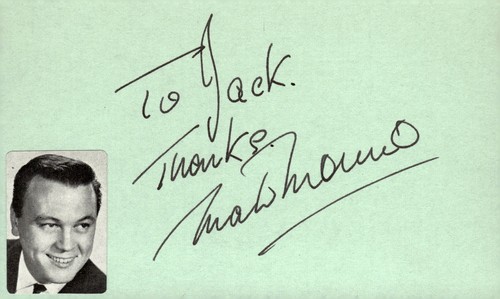 To Jack.
Thanks.
Matt Monro